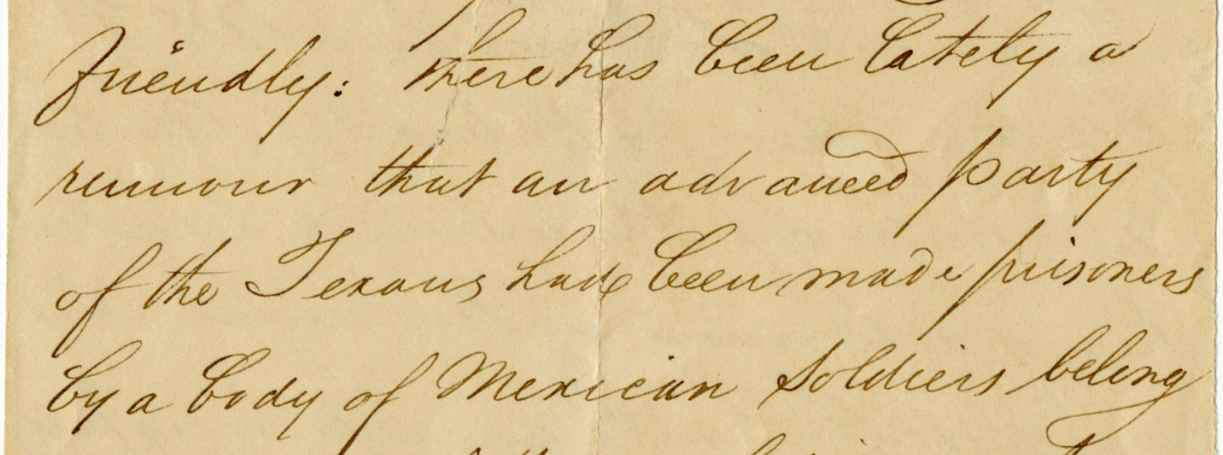 friendly: there has been lately a
rumour that an advanced party
of the Texans have been made prisoners
by a body of Mexican soldiers belong